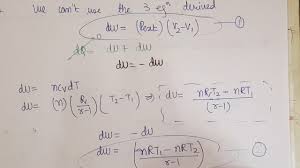 we can't use the 3 eqⁿ derived
dw = (Pext)(V₂-V₁) ①
dQ = dU + dW
dU = -dW
dU = nCvdT
dU = (n)(R/r-1)(T₂-T₁) ⇒ dU = nRT₂ - nRT₁/(r-1)
dU = -dW
nRT₁ - nRT₂/r-1